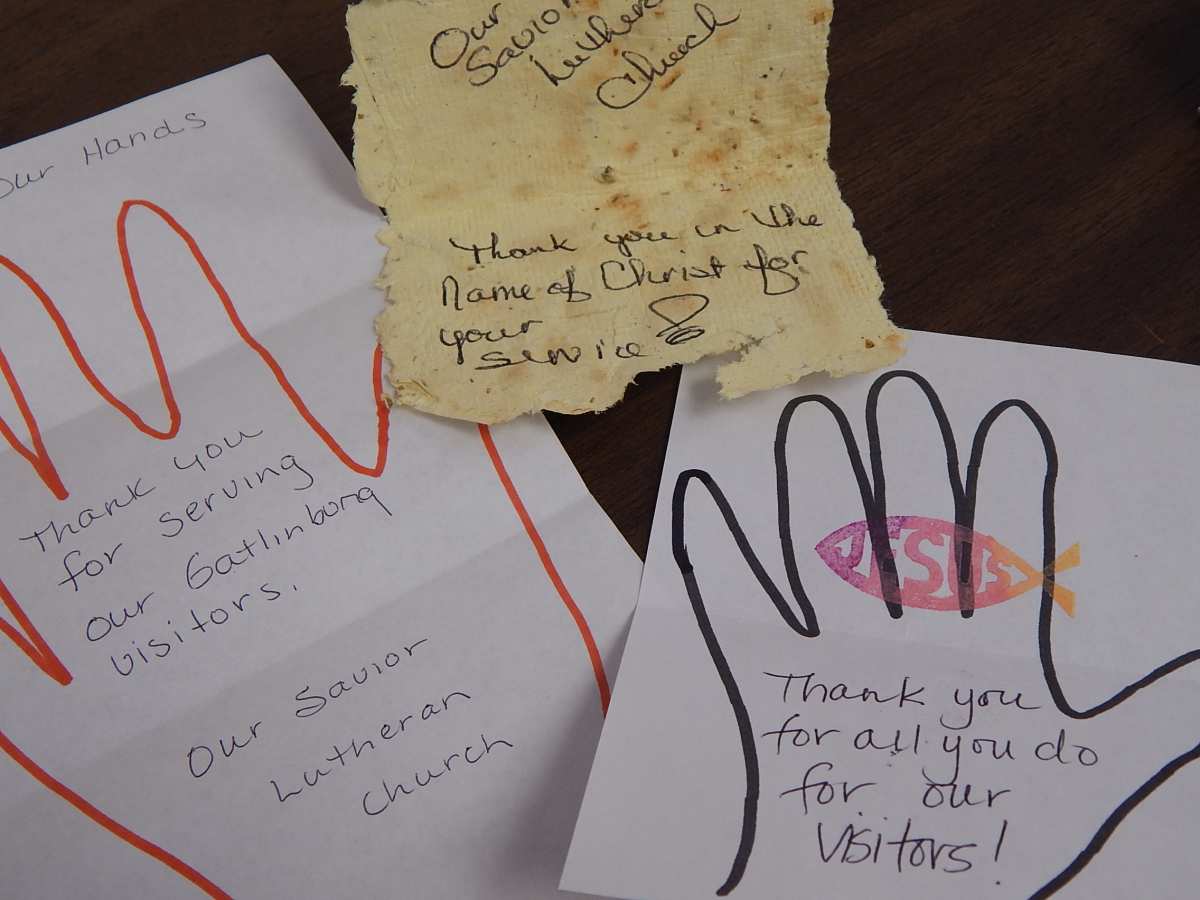 Our Hands
Thank you
for serving
our Gatlinburg
visitors.
Our Savior
Lutheran
Church
Our
Savior
Luthera
Church
Thank you in the
Name of Christ for
your
service
JESUS
Thank you
for all you do
for our
visitors!